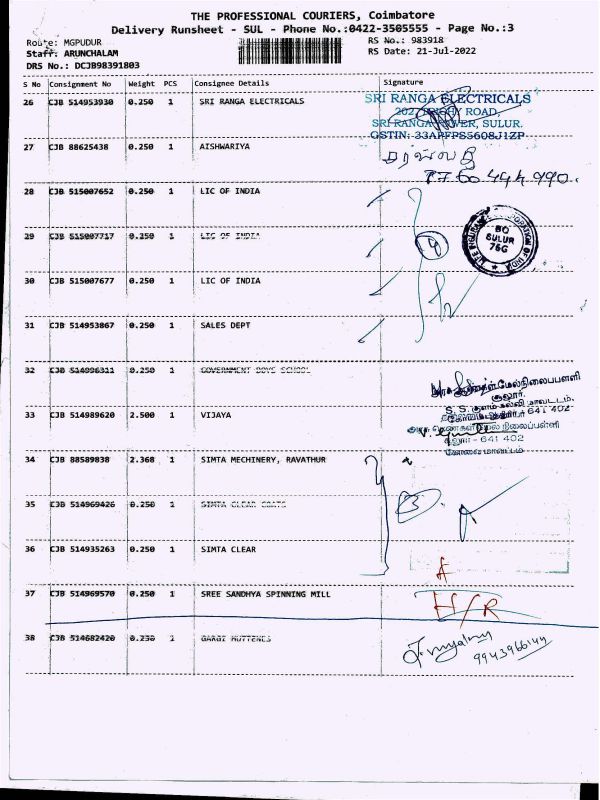 THE PROFESSIONAL COURIERS, Coimbatore
Delivery Runsheet - SUL - Phone No.:0422-3505555 - Page No.:3
Route: MGPUDUR
RS No.: 983918
Staff: ARUNCHALAM
RS Date: 21-Jul-2022
DRS No.: DCJB98391803
S No Consignment No Weight PCS Consignee Details Signature
26 CJB 514953930 0.250 1 SRI RANGA ELECTRICALS
SRI RANGA ELECTRICALS
ROAD,
SRI RANGA TOWER, SULUR.
GSTIN: 33APFPS5608J1ZP
27 CJB 88625438 0.250 1 AISHWARIYA
28 CJB 515007652 0.250 1 LIC OF INDIA
BO
SULUR
76G
29 CJB 515007717 0.250 1 LIC OF INDIA
30 CJB 515007677 0.250 1 LIC OF INDIA
31 CJB 514953867 0.250 1 SALES DEPT
32 CJB 514996311 0.250 1 GOVERNMENT BOYS SCHOOL
சூலூர்.
33 CJB 514989620 2.500 1 VIJAYA
641 402
சூலூர் - 641 402
கோவை மாவட்டம்
34 CJB 88589838 2.368 1 SIMTA MECHINERY, RAVATHUR
35 CJB 514969426 0.250 1 SIMTA CLEAR COATS
36 CJB 514935263 0.250 1 SIMTA CLEAR
37 CJB 514969570 0.250 1 SREE SANDHYA SPINNING MILL
H/R
38 CJB 514682420 0.230 1
9943966144